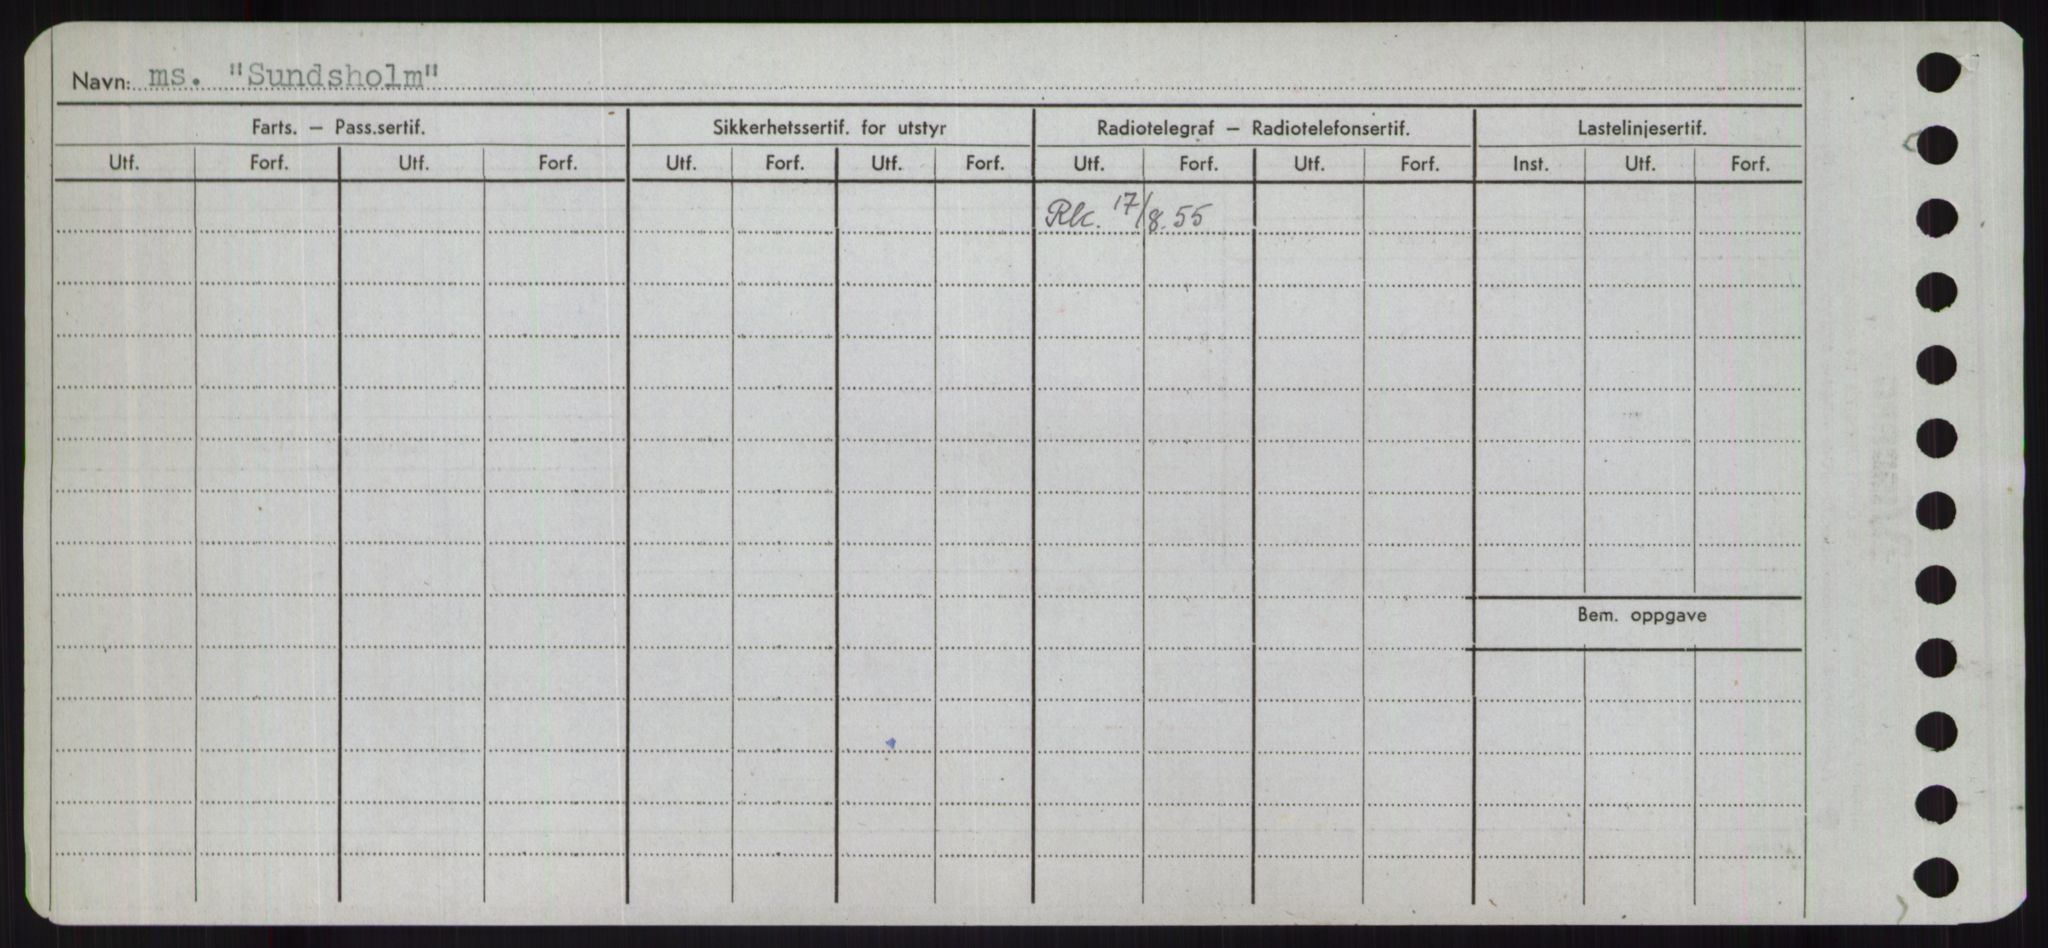 Navn: ms. "Sundsholm"
Farts. — Pass.sertif. Sikkerhetssertif. for utstyr Radiotelegraf — Radiotelefonsertif. Lastelinjesertif.
Utf. Forf. Utf. Forf. Utf. Forf. Utf. Forf. Utf. Forf. Utf. Forf. Inst. Utf. Forf.
Rk. 17/8.55
Bem. oppgave